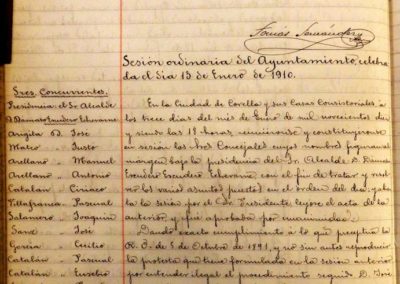 Tomás Fernández
Sesión ordinaria del Ayuntamiento, celebra-
da el día 13 de Enero de 1910.
Sres. Concurrentes.
Presidencia el Sr. Alcalde
D. Dámaso Escudero Echevarria
Angita D. José
Mateo " Justo
Arellano " Manuel
Arellano " Antonio
Catalán " Ciriaco
Villafranca " Pascual
Salamero " Joaquin
Sanz " José
Garcia " Cecilio
Catalán " Pascual
Catalán " Eusebio
En la Ciudad de Corella y sus Casas Consistoriales, á
los trece dias del mes de Enero de mil novecientos diez
y siendo las 18 horas, reuniéronse y constituyeronse
en sesión los Sres Concejales cuyos nombres figuran al
márgen bajo la presidencia del Sr. Alcalde D. Dámaso
Escudero con el fin de tratar y resol-
ver los varios asuntos puestos en el orden del dia; abier-
ta la sesión por el Sr. Presidente leyose el acta de la
anterior y fué aprobada por unanimidad.
Dando exacto cumplimiento á lo que preceptua la
R. O. de 5 de Octubre de 1891, y no sin antes reproducir
la protesta que tiene formulada en la sesión anterior
por entender ilegal el procedimiento seguido D. José